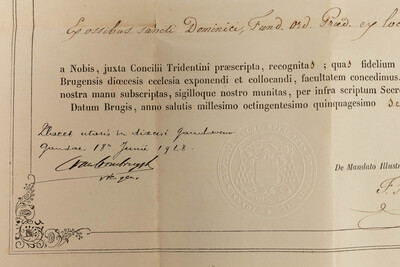 Ex ossibus sancti Dominici, Fund. Ord. Præd. ex loc
a Nobis, juxta Concilii Tridentini præscripta, recognitas; quas fidelium
Brugensis diœcesis ecclesia exponendi et collocandi, facultatem concedimus.
nostra manu subscriptas, sigilloque nostro munitas, per infra scriptum Secre
Datum Brugis, anno salutis millesimo octingentesimo quinquagesimo
Placet uti in
18a Junii 1928
vic. gen.
De Mandato Illustri